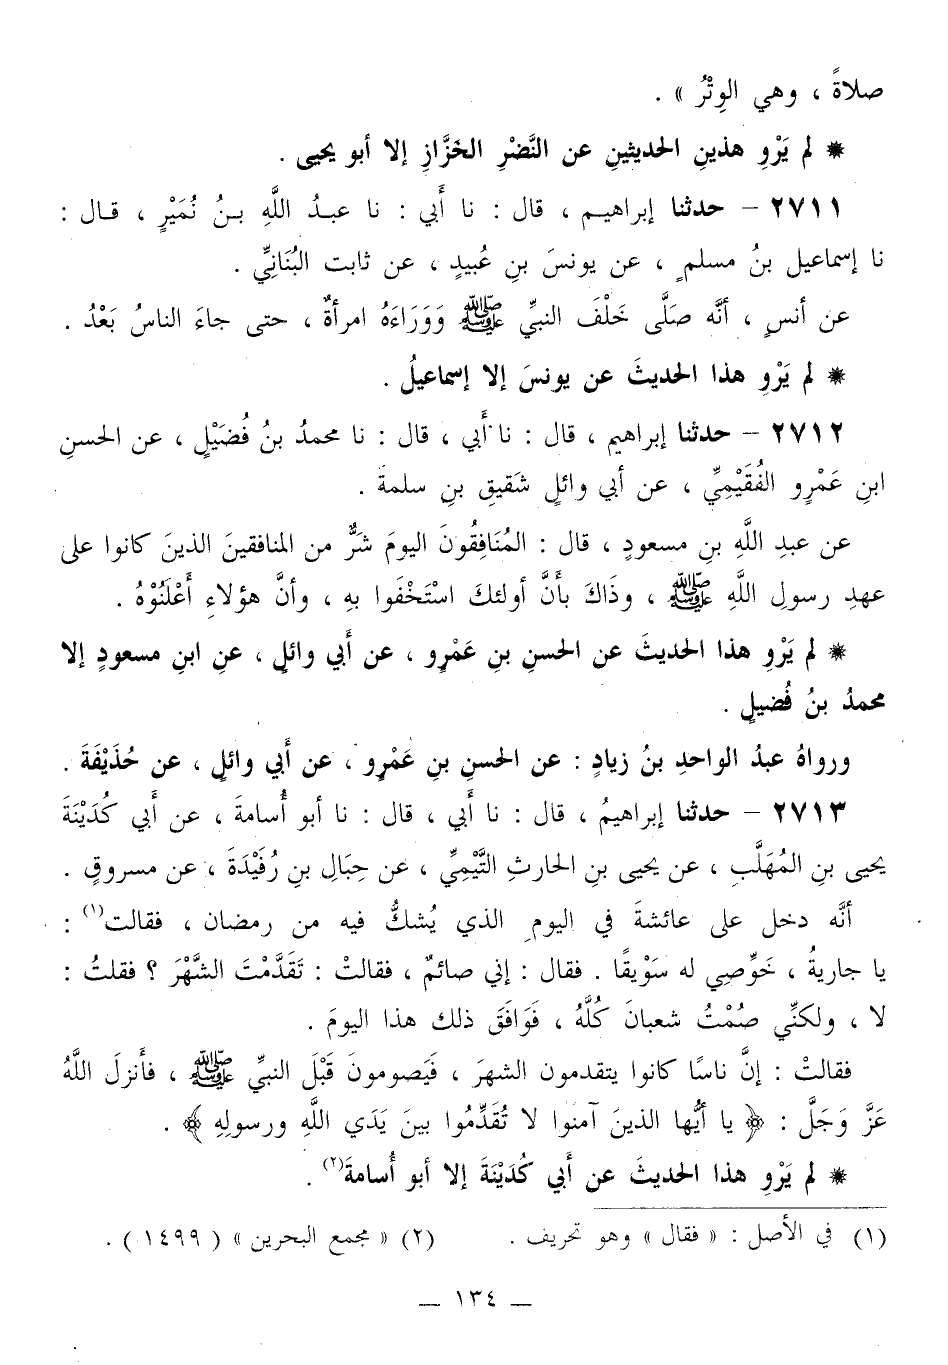 صلاةً ، وهي الوِتْرُ » .
* لم يَرْوِ هذينِ الحديثينِ عن النَّضْرِ الخَزَّازِ إلا أبو يحيى .
٢٧١١ – حدثنا إبراهيم ، قال : نا أَبي : نا عبدُ اللَّهِ بنُ نُمَيْرٍ ، قال :
نا إسماعيل بنُ مسلمٍ ، عن يونسَ بنِ عُبيدٍ ، عن ثابت البُنَانِّي .
عن أنسٍ ، أنَّه صَلَّى خَلْفَ النبيِّ ﷺ وَوَرَاءَهُ امرأةٌ ، حتى جاءَ الناسُ بَعْدُ .
* لم يَرْوِ هذا الحديثَ عن يونسَ إلا إسماعيلُ .
٢٧١٢ – حدثنا إبراهيم ، قال : نا أَبي ، قال : نا محمدُ بنُ فُضَيْلٍ ، عن الحسنِ
ابنِ عَمْرٍو الفُقَيْمِيِّ ، عن أبي وائلٍ شَقيقِ بنِ سلمةَ .
عن عبدِ اللَّهِ بنِ مسعودٍ ، قال : المُنَافِقُونَ اليومَ شَرٌّ من المنافقينَ الذينَ كانوا على
عهدِ رسولِ اللَّهِ ﷺ ، وذَاكَ بأَنَّ أولئكَ اسْتَخْفَوا بهِ ، وأنَّ هؤلاءِ أَعْلَنُوْهُ .
* لم يَرْوِ هذا الحديثَ عن الحسنِ بنِ عَمْرٍو ، عن أَبي وائلٍ ، عنِ ابنِ مسعودٍ إلا
محمدُ بنُ فُضيلٍ .
ورواهُ عبدُ الواحدِ بنُ زيادٍ : عن الحسنِ بنِ عَمْرٍو ، عن أَبي وائلٍ ، عن حُذَيْفَةَ .
٢٧١٣ – حدثنا إبراهيمُ ، قال : نا أَبي ، قال : نا أبو أُسامةَ ، عن أبي كُدَيْنَةَ
يحيى بنِ المُهَلَّبِ ، عن يحيى بنِ الحارثِ التَّيْمِيِّ ، عن حِبَالِ بنِ رُفَيْدَةَ ، عن مسروقٍ .
أنَّه دخل على عائشةَ في اليومِ الذي يُشكُّ فيه من رمضان ، فقالت(١) :
يا جاريةُ ، خَوِّصِي له سَوْيقًا . فقال : إني صائمٌ ، فقالتْ : تَقَدَّمْتَ الشَّهْرَ ؟ فقلتُ :
لا ، ولكنِّي صُمْتُ شعبانَ كُلَّهُ ، فَوَافَقَ ذلك هذا اليومَ .
فقالتْ : إنَّ ناسًا كانوا يتقدمون الشهرَ ، فَيَصومونَ قَبْلَ النبيِّ ﷺ ، فأَنزلَ اللَّهُ
عَزَّ وَجَلَّ : ﴿ يا أيُّها الذينَ آمنُوا لا تُقَدِّمُوا بينَ يَدَي اللَّهِ ورسولِهِ ﴾ .
* لم يَرْوِ هذا الحديثَ عن أَبي كُدَيْنَةَ إلا أبو أُسامةَ(٢) .
(١) في الأصل : « فقال » وهو تحريف . (٢) « مجمع البحرين » ( ١٤٩٩ ) .
— ١٣٤ —